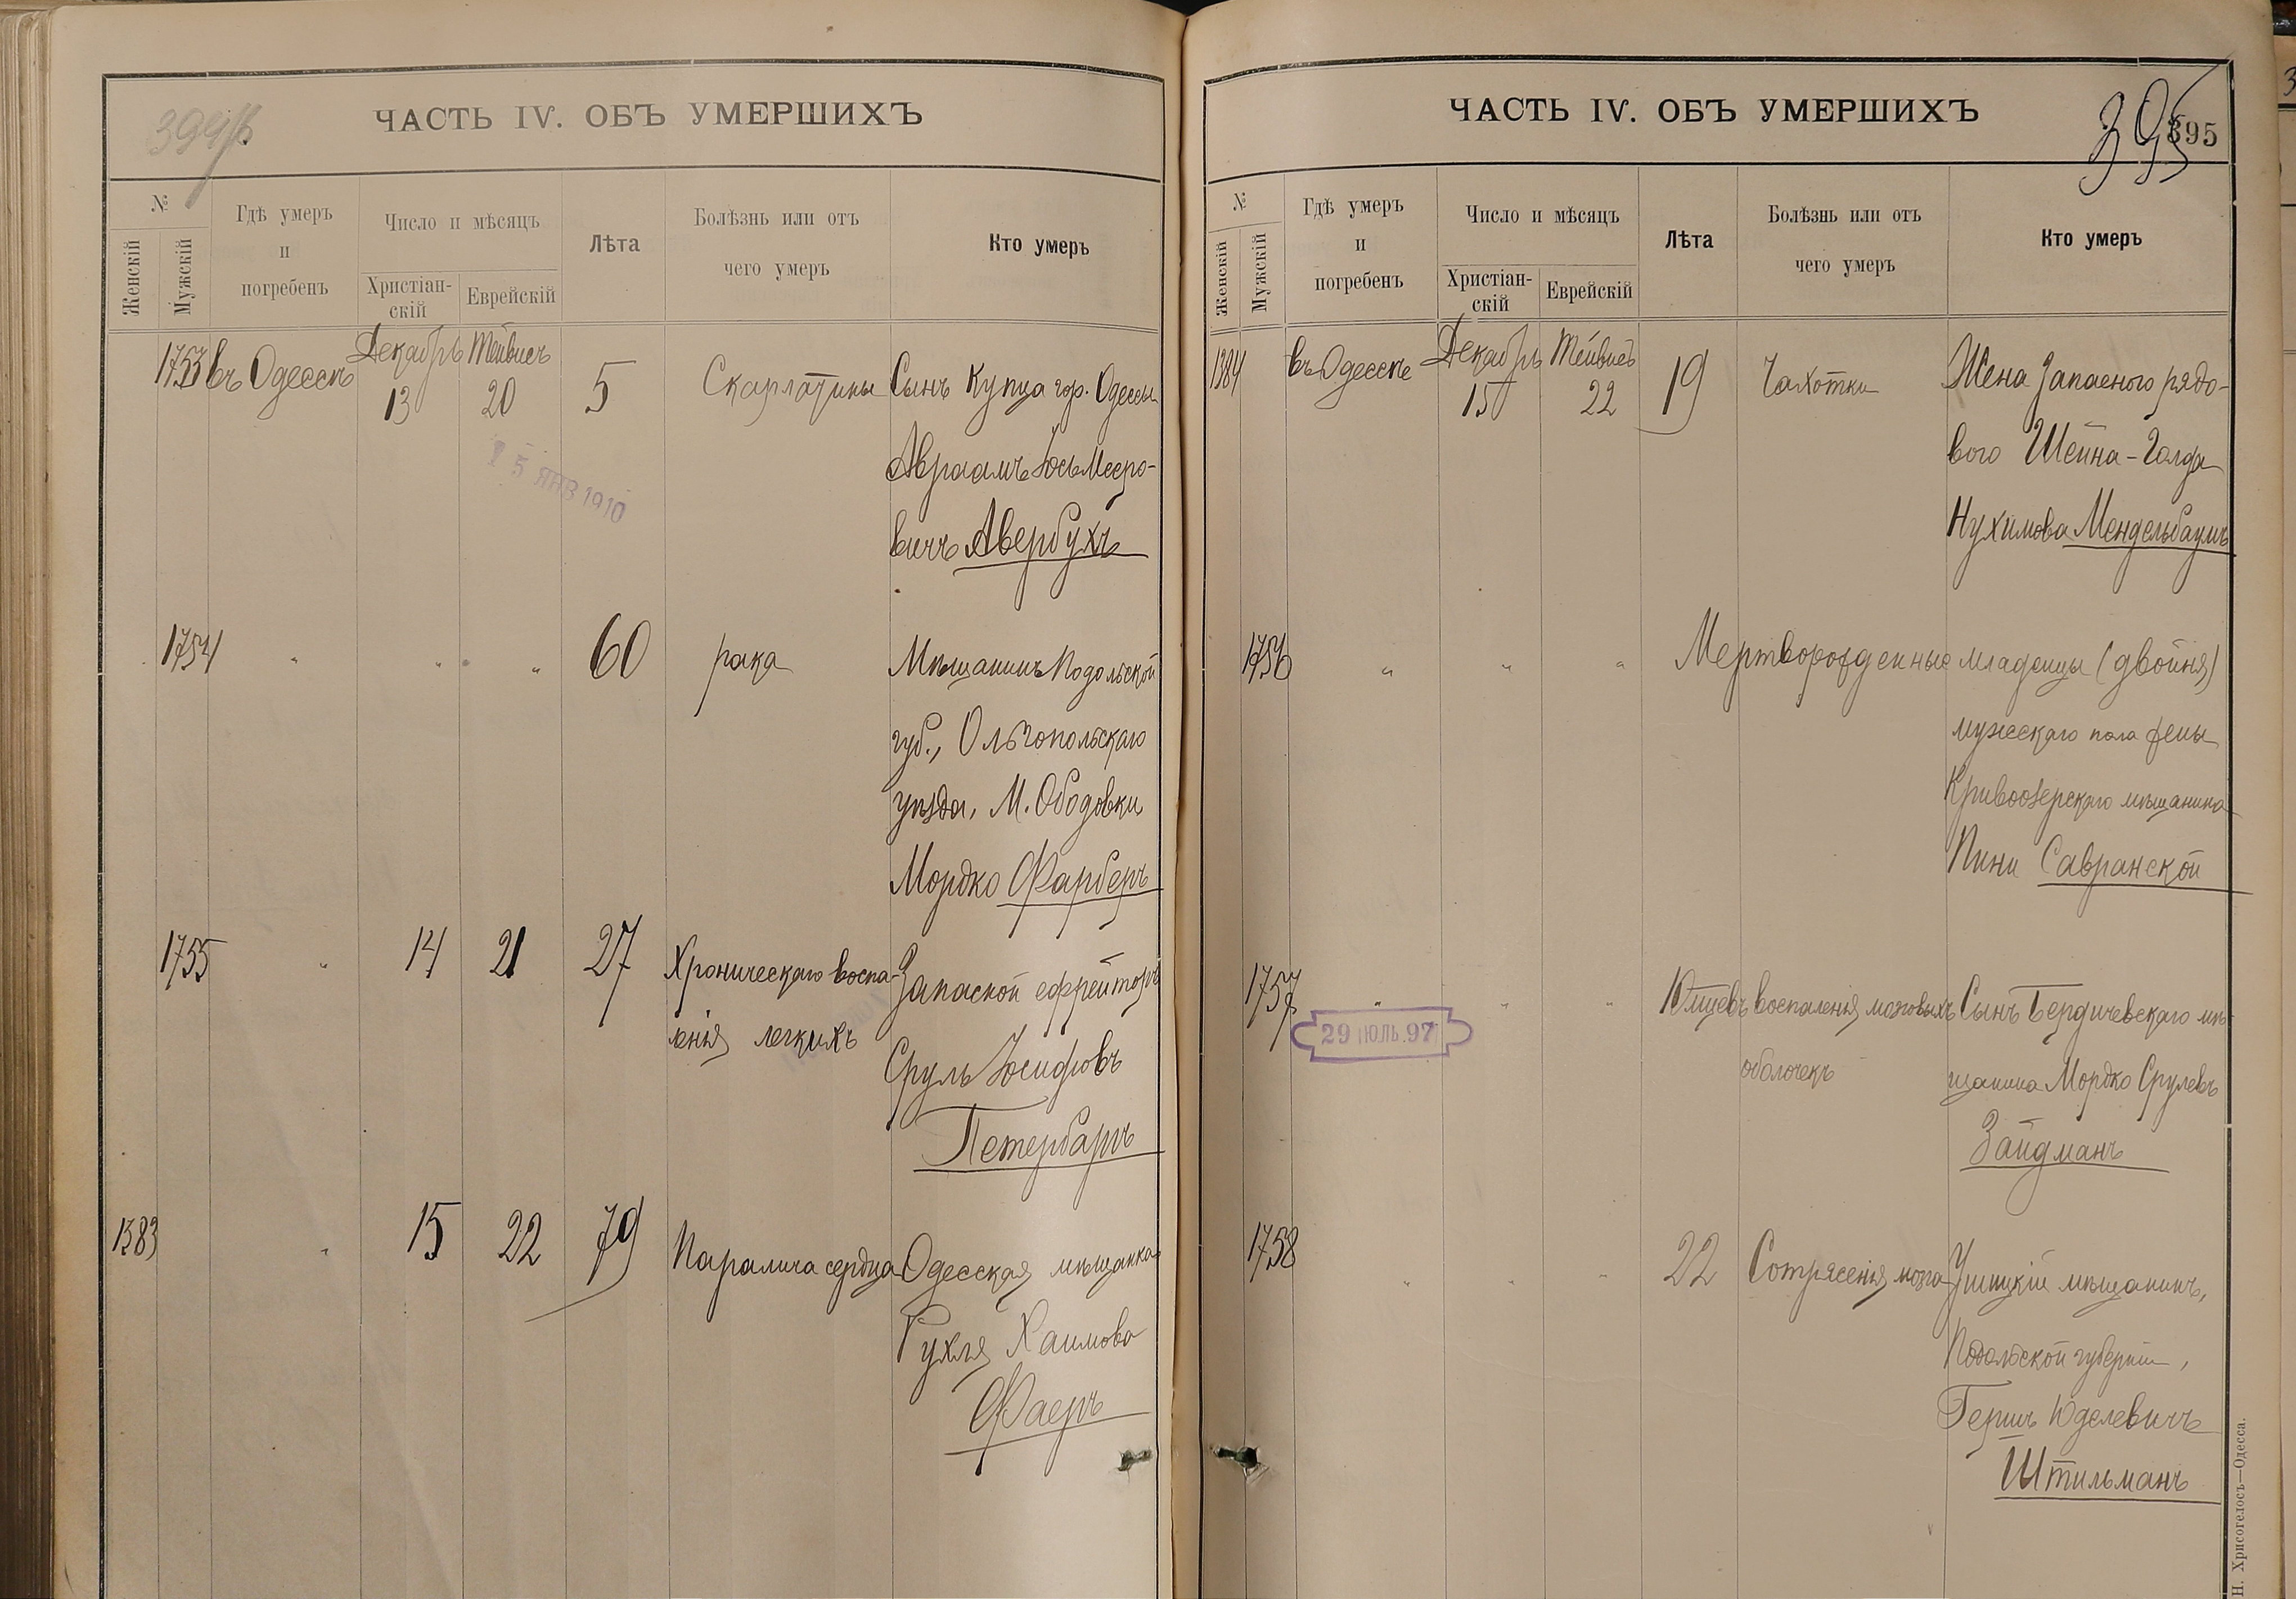 ЧАСТЬ IV. ОБЪ УМЕРШИХЪ
№
Женскій
Мужскій
Гдѣ умеръ
и
погребенъ
Число и мѣсяцъ
Христіан-
скій
Еврейскій
Лѣта
Болѣзнь или отъ
чего умеръ
Кто умеръ
1753 въ Одессѣ Декабрь 13 Тейвисъ 20 5 Скарлатины Сынъ Купца гор. Одессы
Авраамъ Іось Мееро-
вичъ Авербухъ
15 ЯНВ 1910
1754 " " " 60 рака Мѣщанинъ Подольской
губ., Ольгопольскаго
уѣзда, М. Ободовки
Мордко Фарберъ
1755 " 14 21 27 Хроническаго воспа- Запасной ефрейторъ
ленія легкихъ Сруль Іосифовъ
Петербаръ
1383 " 15 22 79 Паралича сердца Одесская мѣщанка
Рухля Хаимова
Фаеръ
ЧАСТЬ IV. ОБЪ УМЕРШИХЪ
395
395
№
Женскій
Мужскій
Гдѣ умеръ
и
погребенъ
Число и мѣсяцъ
Христіан-
скій
Еврейскій
Лѣта
Болѣзнь или отъ
чего умеръ
Кто умеръ
1384 въ Одессѣ Декабрь 15 Тейвисъ 22 19 Чахотки Жена Запасного рядо-
вого Шейна-Голда
Нухимова Мендельбаумъ
1756 " " " Мертворожденные младенцы (двойня)
мужескаго пола жены
Кривоозерскаго мѣщанина
Пини Савранской
1757 " " " 10 мѣсяцевъ воспаленія мозговыхъ Сынъ Бердичевскаго мѣ-
оболочекъ щанина Мордко Срулевъ
Зайдманъ
29 ІЮЛЬ 97
1758 " " " 22 Сотрясенія мозга Ушицкій мѣщанинъ,
Подольской губерніи,
Гершъ Юделевичъ
Штильманъ
Н. Хрисогелосъ—Одесса.